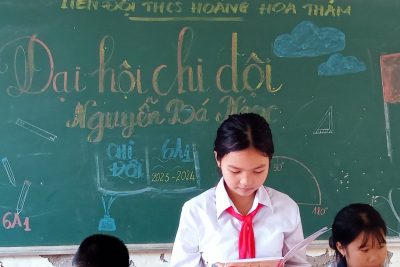 LIÊN ĐỘI THCS HOÀNG HOA THÁM
Đại hội chi đội
Nguyễn Bá Ngọc
CHI ĐỘI
6A1
2023-2024
6A1
180°